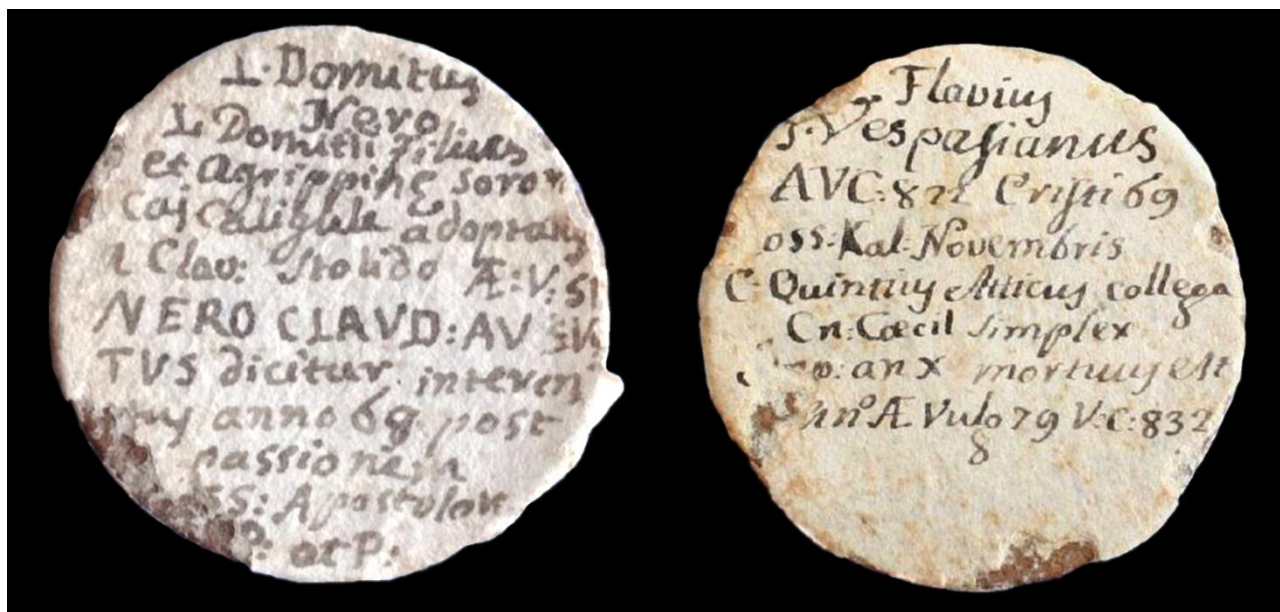 L. Domitius
Nero
L Domitii Filius
et Agrippinę soror
Caj Caligulę adoptatus
a Clau: Stolido Æ: V: 51
NERO CLAVD: AV
TVS dicitur interem
anno 69 post
passionem
SS: Apostolor
P: et P:
Flavius
T. Vespasianus
AVC: 822 Cristi 69
Kal: Novembris
C. Quintius Atticus collega
Cn: Cæcil simplex
an X mortuus est
Ann° Æ Vulg 79 V: C: 832